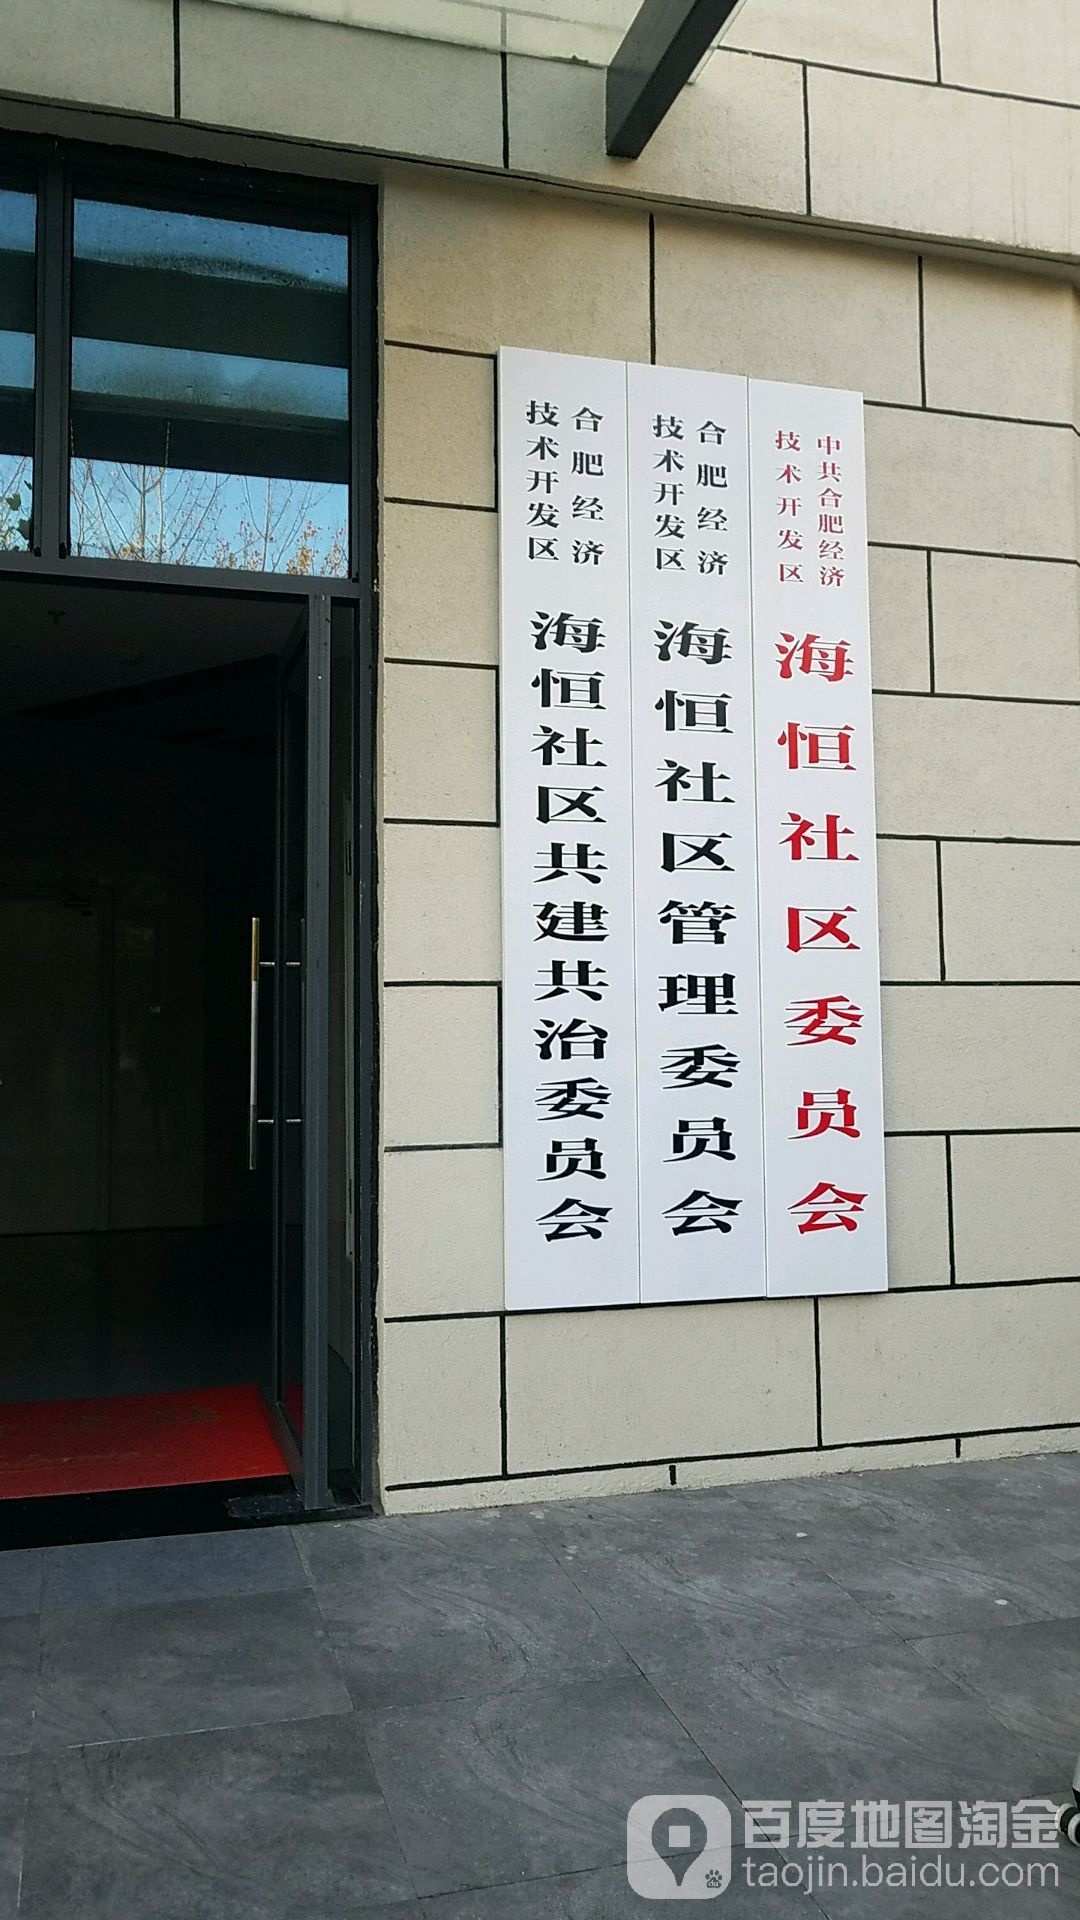 中共合肥经济
技术开发区
海恒社区委员会
合肥经济
技术开发区
海恒社区管理委员会
合肥经济
技术开发区
海恒社区共建共治委员会
百度地图淘金
taojin.baidu.com